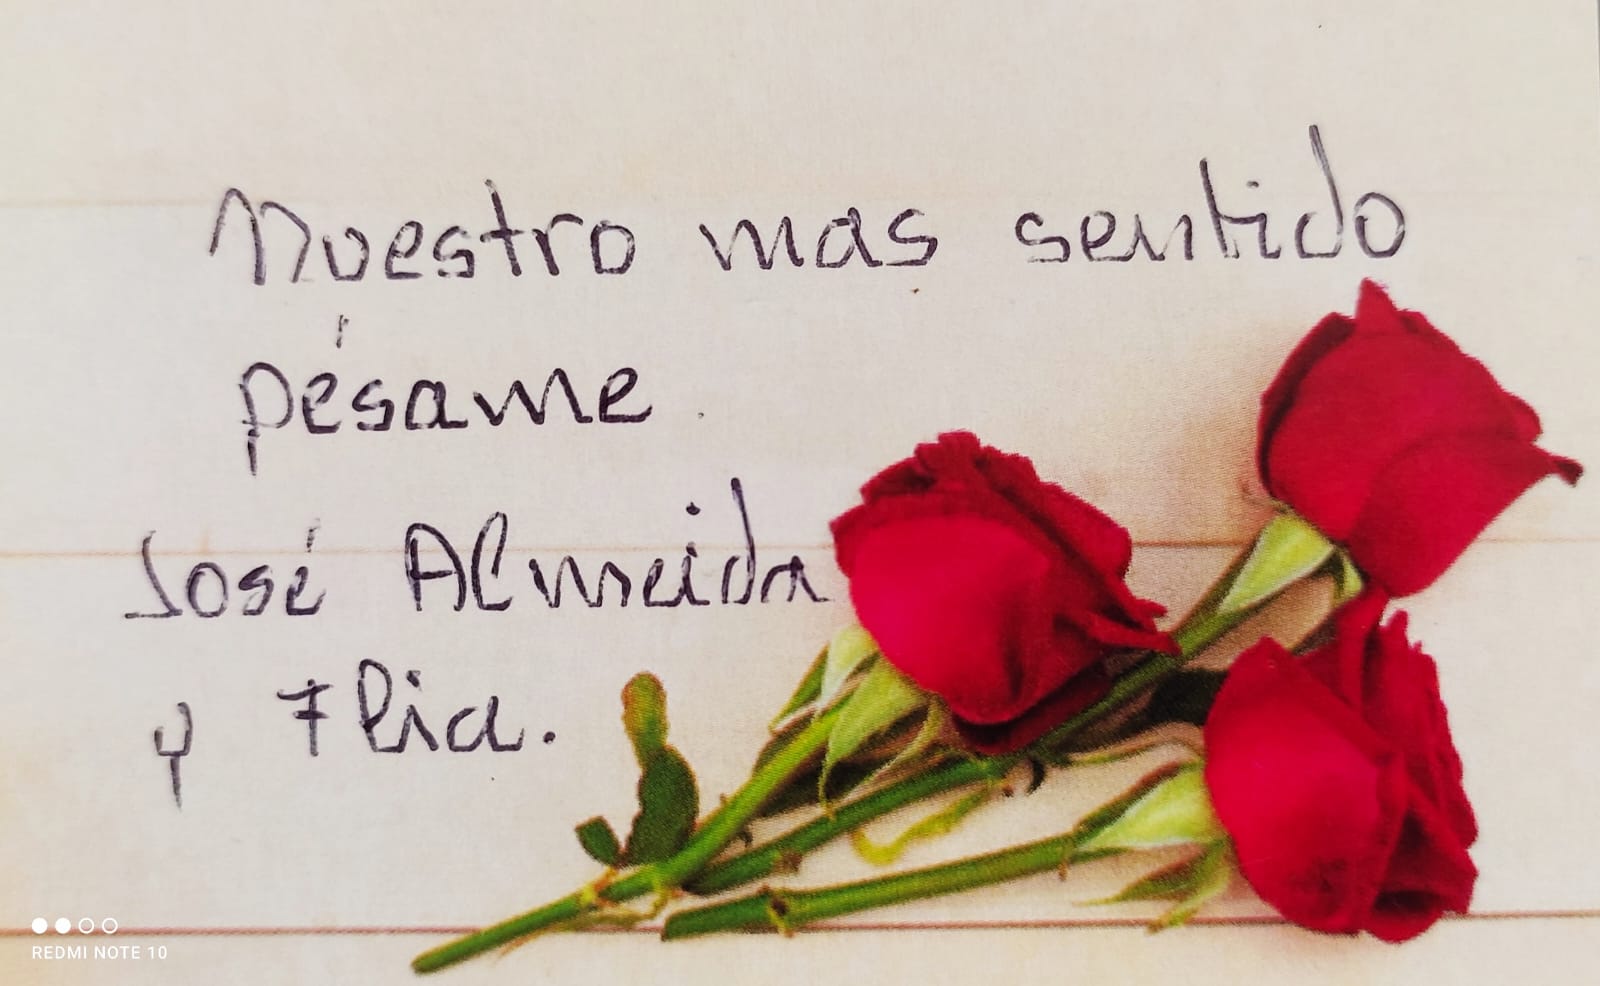 Nuestro mas sentido
pésame.
José Almeida
y Flia.
REDMI NOTE 10